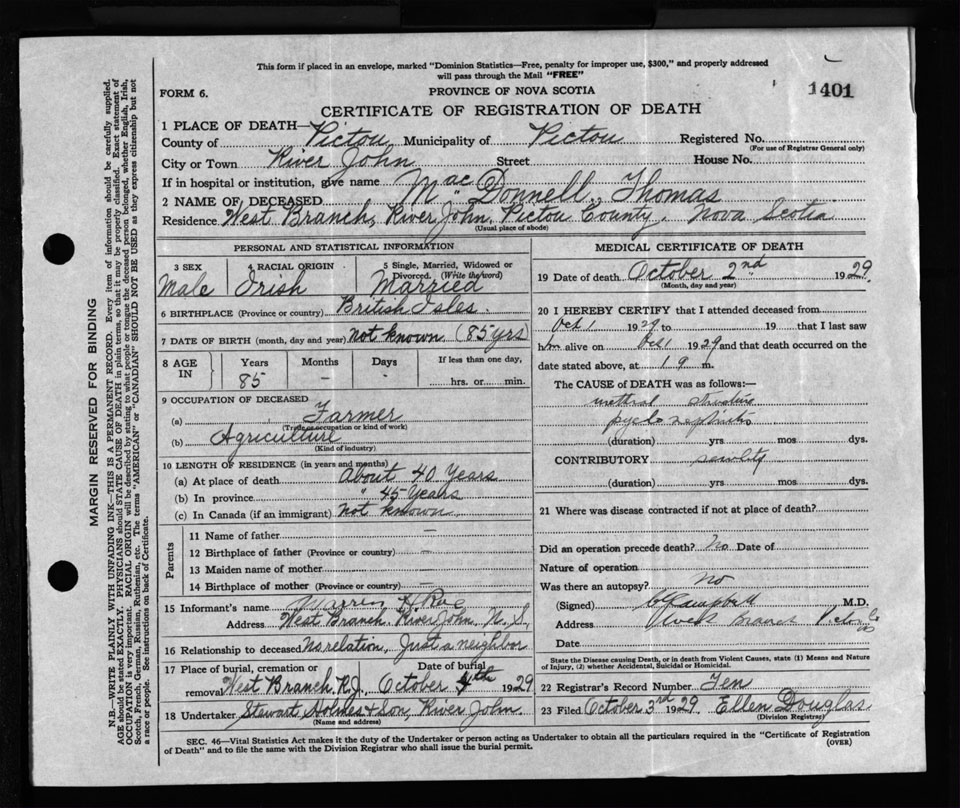 This form if placed in an envelope, marked "Dominion Statistics—Free, penalty for improper use, $300," and properly addressed
will pass through the Mail "FREE"
FORM 6.
PROVINCE OF NOVA SCOTIA
1401
CERTIFICATE OF REGISTRATION OF DEATH
1 PLACE OF DEATH—
County of Pictou Municipality of Pictou Registered No.
(For use of Registrar General only)
City or Town River John Street House No.
If in hospital or institution, give name
2 NAME OF DECEASED MacDonnell, Thomas
Residence West Branch, River John, Pictou County, Nova Scotia
(Usual place of abode)
PERSONAL AND STATISTICAL INFORMATION
3 SEX Male
4 RACIAL ORIGIN Irish
5 Single, Married, Widowed or Divorced. (Write the word) Married
6 BIRTHPLACE (Province or country) British Isles.
7 DATE OF BIRTH (month, day and year) Not known (85 yrs)
8 AGE IN Years 85 Months – Days – If less than one day, hrs. or min.
9 OCCUPATION OF DECEASED
(a) Farmer
(Trade or occupation or kind of work)
(b) Agriculture
(Kind of industry)
10 LENGTH OF RESIDENCE (in years and months)
(a) At place of death About 40 Years
(b) In province " 45 Years
(c) In Canada (if an immigrant) Not known
Parents
11 Name of father —
12 Birthplace of father (Province or country) —
13 Maiden name of mother —
14 Birthplace of mother (Province or country) —
15 Informant's name H. Rae
Address West Branch, River John, N. S.
16 Relationship to deceased No relation, Just a neighbor
17 Place of burial, cremation or removal West Branch, R.J., Date of burial October 4th 1929
18 Undertaker Stewart Holmes & Son, River John
(Name and address)
MEDICAL CERTIFICATE OF DEATH
19 Date of death October 2nd 1929
(Month, day and year)
20 I HEREBY CERTIFY that I attended deceased from
Oct 1 1929 to 19 that I last saw
him alive on Oct 1 1929 and that death occurred on the
date stated above, at m.
The CAUSE of DEATH was as follows:—
urethral stricture
pyelo nephritis
(duration) yrs mos dys.
CONTRIBUTORY senility
(duration) yrs mos dys.
21 Where was disease contracted if not at place of death?
Did an operation precede death? No Date of
Nature of operation
Was there an autopsy? No
(Signed) Campbell M.D.
Address Branch Pictou Co
Date
State the Disease causing Death, or in death from Violent Causes, state (1) Means and Nature
of Injury, (2) whether Accidental, Suicidal or Homicidal.
22 Registrar's Record Number Ten
23 Filed October 3rd 1929 Ellen Douglas
(Division Registrar)
SEC. 46—Vital Statistics Act makes it the duty of the Undertaker or person acting as Undertaker to obtain all the particulars required in the "Certificate of Registration
of Death" and to file the same with the Division Registrar who shall issue the burial permit.
(OVER)
MARGIN RESERVED FOR BINDING
N.B.—WRITE PLAINLY WITH UNFADING INK—THIS IS A PERMANENT RECORD. Every item of information should be carefully supplied.
AGE should be stated EXACTLY. PHYSICIANS should STATE CAUSE OF DEATH in plain terms, so that it may be properly classified. Exact statement of
OCCUPATION is very important. RACIAL ORIGIN will be described by stating to what people or tongue the deceased person belonged, whether English, Irish,
Scotch, French, German, Russian, Ruthenian, etc. The terms "AMERICAN" or "CANADIAN" SHOULD NOT BE USED as they express citizenship but not
a race or people. See instructions on back of Certificate.